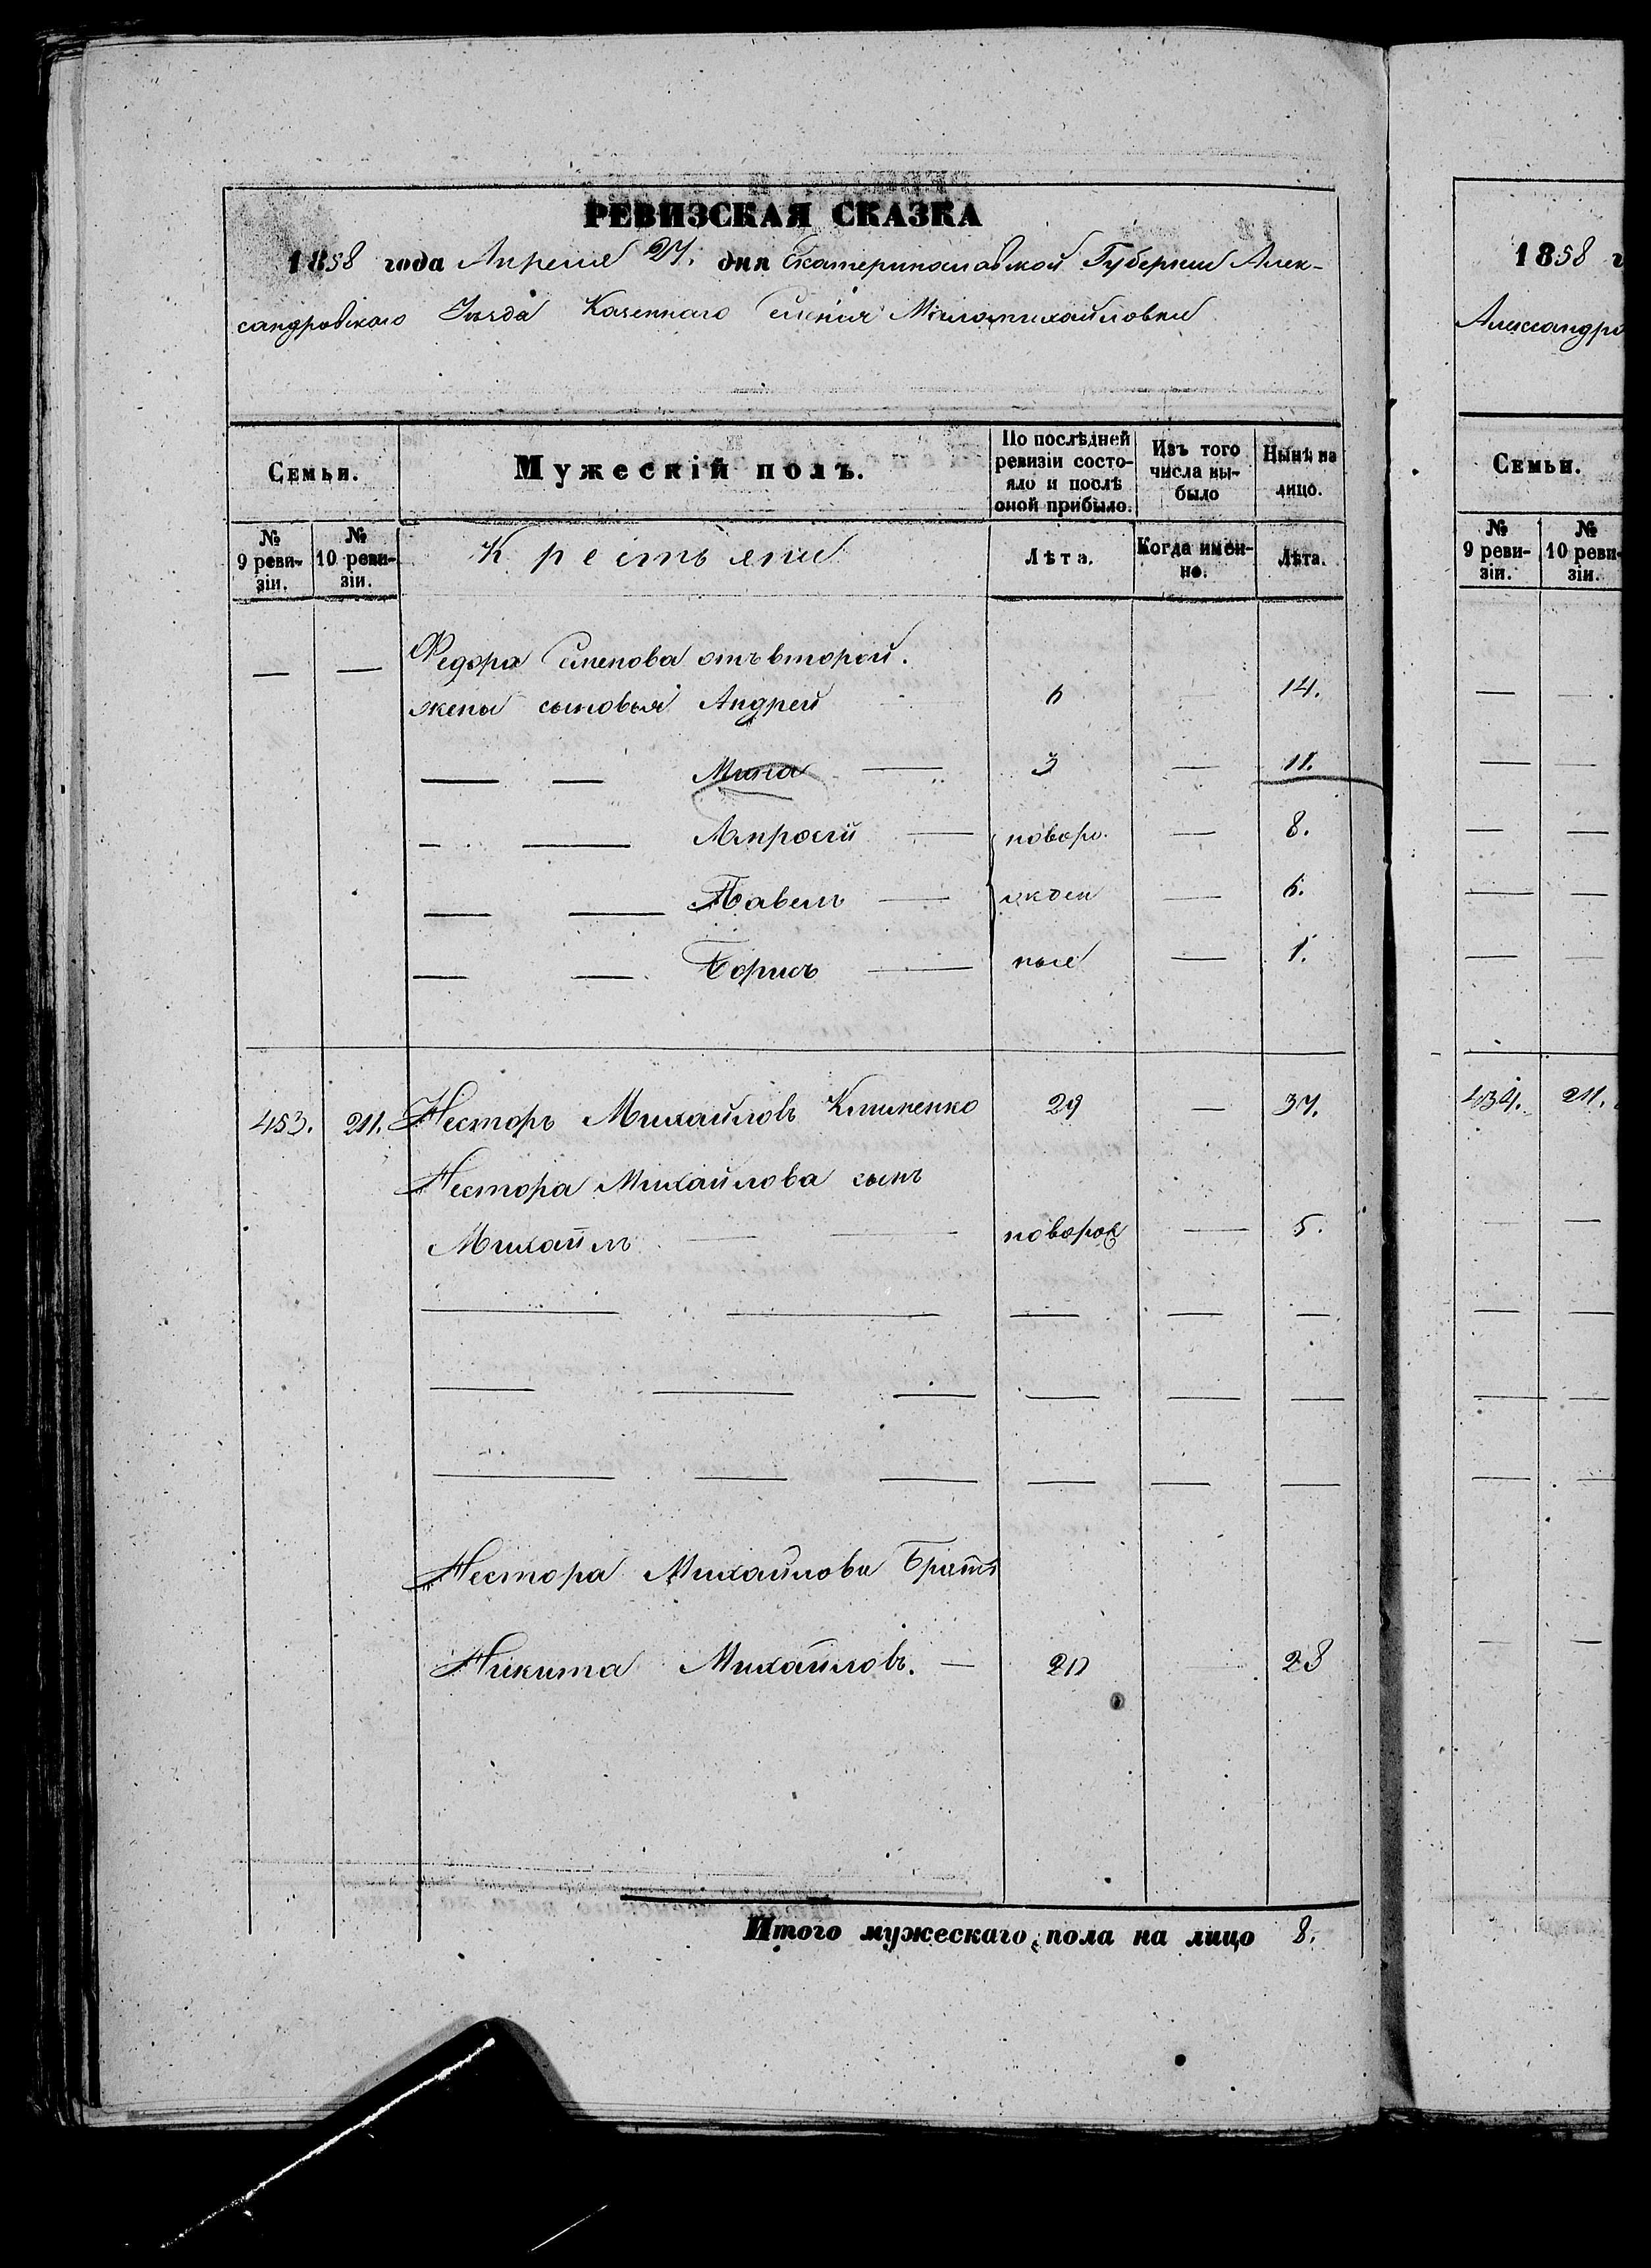 РЕВИЗСКАЯ СКАЗКА
1858 года Апреля 27. дня Екатеринославской Губернии Алек-
сандровского Уѣзда Казеннаго Селенія Маломихайловки
Семьи.
Мужескій полъ.
По послѣдней ревизіи состо-яло и послѣ оной прибыло.
Изъ того числа вы-было
Нынѣ на лицо.
№ 9 реви-зіи.
№ 10 реви-зіи.
Крестьяне
Лѣта.
Когда имен-но.
Лѣта.
— — Федора Семенова отъ второй.
жены сыновья Андрей 6 — 14.
— — Мина — 3 — 11.
— — Амросій — новоро. — 8.
— — Павелъ — жден — 6.
— — Борисъ — ные — 1.
453. 211. Несторъ Михайловъ Клименко 29 — 37.
Нестора Михайлова сынъ
Михайлъ — — новорож — 5.
Нестора Михайлова Братъ
Никита Михайловъ. — 20 28
Итого мужескаго пола на лицо 8.
1858 г
Александро
Семьи.
№ 9 реви-зіи.
№ 10 реви-зіи.
434. 211.